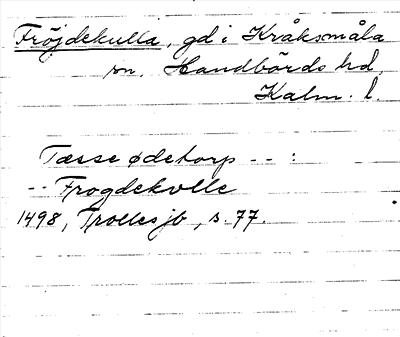 Fröjdekulla, gd i Kråksmåla
sn. Handbörds hd,
Kalm. l.
Tæsse ødetorp -- :
-- Frogdekvlle
1498, Trolles jb, s. 77.